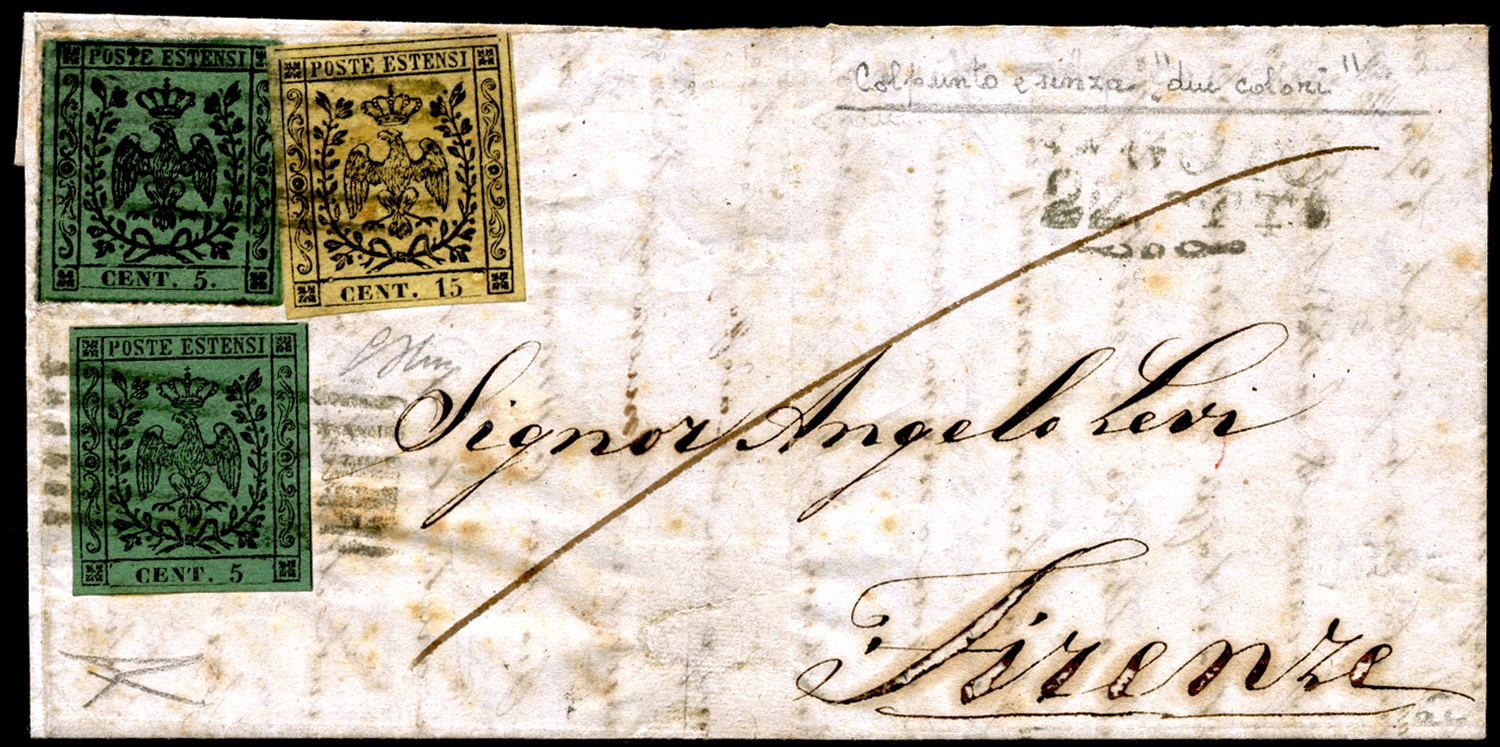 POSTE ESTENSI
CENT. 5.
POSTE ESTENSI
CENT. 15
POSTE ESTENSI
CENT. 5
Col punto e senza "due colori"
22
Signor Angelo Levi
Firenze